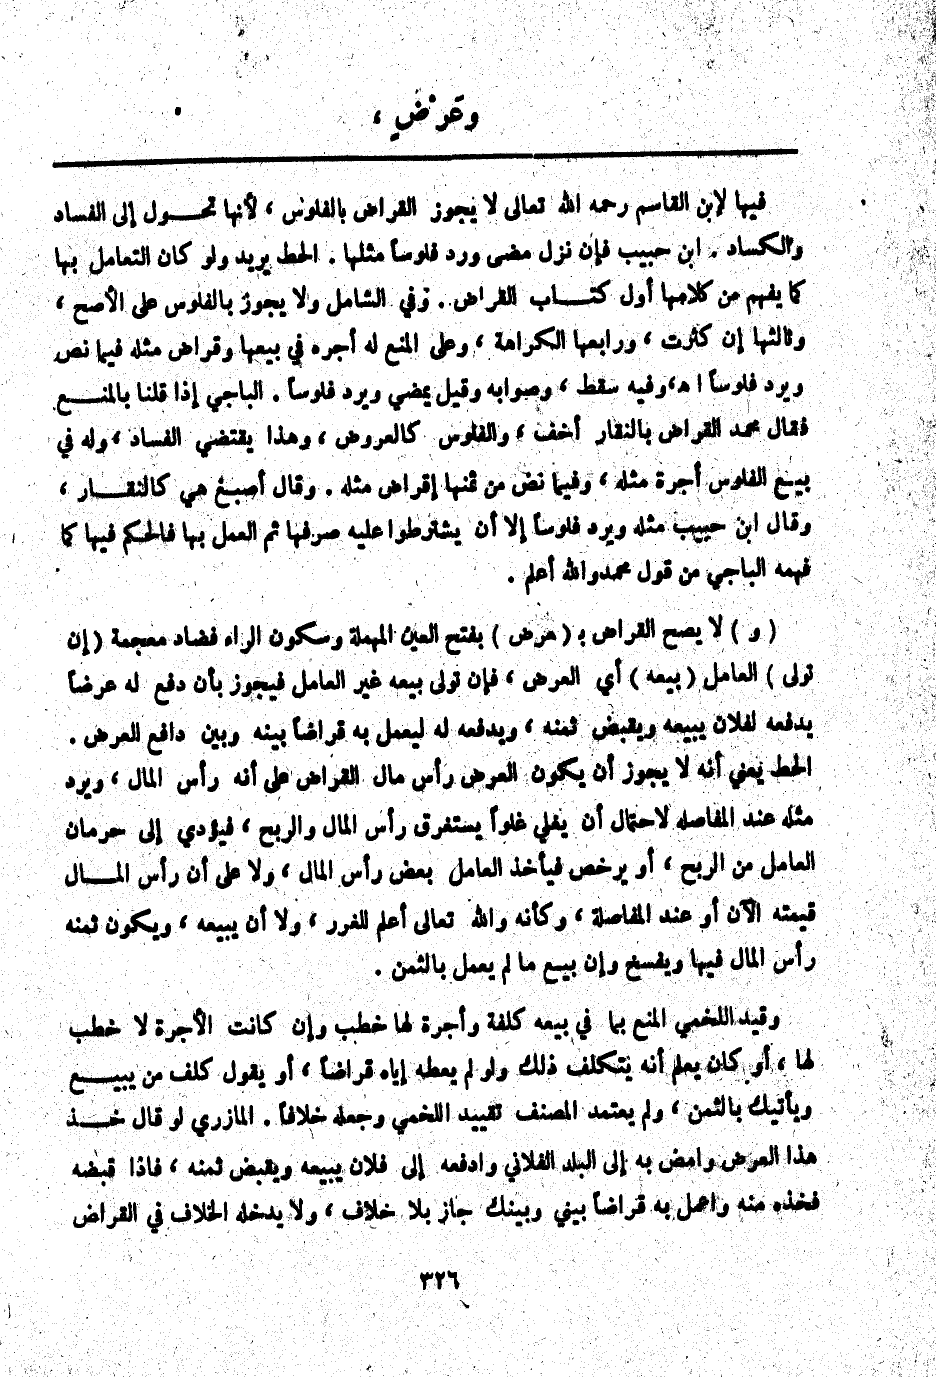 وعَرْضٍ ،
فيها لإبن القاسم رحمه الله تعالى لا يجوز القراض بالفلوس ، لأنها تحـــول إلى الفساد
والكساد . ابن حبيب فإن نزل مضى ورد فلوساً مثلها . الحط يريد ولو كان التعامل بها
كما يفهم من كلامها أول كتـــاب القراض . وفي الشامل ولا يجوز بالفلوس على الأصح ،
وثالثها إن كثرت ، ورابعها الكراهة ، وعلى المنع له أجره في بيعها وقراض مثله فيما نص
ويرد فلوساً ا ه‍،وفيه سقط ، وصوابه وقيل يمضي ويرد فلوساً . الباجي إذا قلنا بالمنـــع
فقال محمد القراض بالنقار أخف ، والفلوس كالعروض ، وهذا يقتضي الفساد ، وله في
بيـع الفلوس أجرة مثله ، وفيما نض من ثمنها إقراض مثله . وقال أصبـغ هي كالنقـــار ،
وقال ابن حبيب مثله ويرد فلوساً إلا أن يشترطوا عليه صرفها ثم العمل بها فالحكم فيها كما
فهمه الباجي من قول محمدوالله أعلم .
( و ) لا يصح القراض بـ ( عرض ) بفتح العين المهملة وسكون الراء فضاد معجمة ( إن
تولى ) العامل ( بيعه ) أي العرض ، فإن تولى بيعه غير العامل فيجوز بأن دفع له عرضاً
يدفعه لفلان يبيعه ويقبض ثمنه ، ويدفعه له ليعمل به قراضاً بينه وبين دافع العرض .
الحط يعني أنه لا يجوز أن يكون العرض رأس مال القراض على أنه رأس المال ، ويرد
مثله عند المفاصله لاحتمال أن يغلي غلواً يستغرق رأس المال والربح ، فيؤدي إلى حرمان
العامل من الربح ، أو يرخص فيأخذ العامل بعض رأس المال ، ولا على أن رأس المـــال
قيمته الآن أو عند المفاصلة ، وكأنه والله تعالى أعلم للغرر ، ولا أن يبيعه ، ويكون ثمنه
رأس المال فيها ويفسخ وإن بيـع ما لم يعمل بالثمن .
وقيد اللخمي المنع بما في بيعه كلفة وأجرة لها خطب وإن كانت الأجرة لا خطب
لها ، أو كان يعلم أنه يتكلف ذلك ولو لم يعطه إياه قراضاً ، أو يقول كلف من يبيـــع
ويأتيك بالثمن ، ولم يعتمد المصنف تقييد اللخمي وجعله خلافاً . المازري لو قال خـــذ
هذا العرض وامض به إلى البلد الفلاني وادفعه إلى فلان يبيعه ويقبض ثمنه ، فاذا قبضه
فخذه منه واعمل به قراضاً بيني وبينك جاز بلا خلاف ، ولا يدخله الخلاف في القراض
٣٢٦